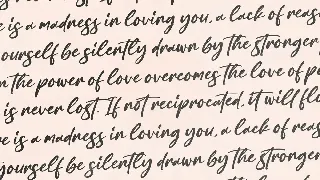 e is a madness in loving you, a lack of reas
ourself be silently drawn by the stronger
n the power of love overcomes the love of po
is never lost. If not reciprocated, it will flo
e is a madness in loving you, a lack of reas
yourself be silently drawn by the stronger